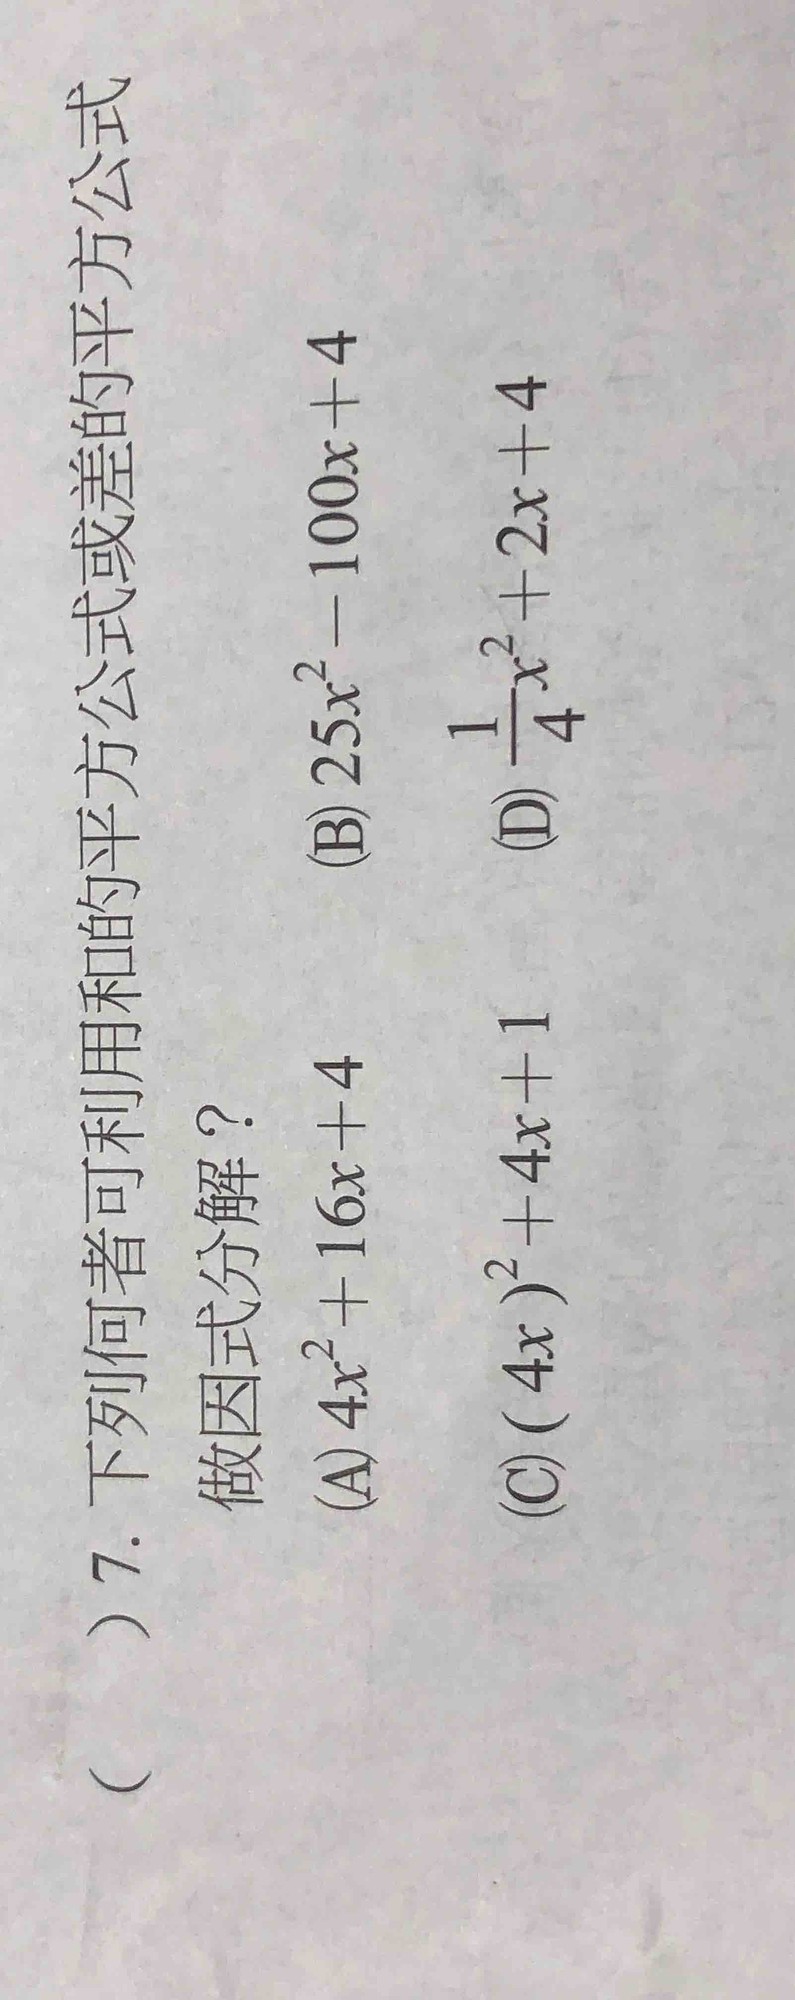 (　　) 7. 下列何者可利用和的平方公式或差的平方公式
做因式分解？
(A) 4x²＋16x＋4　(B) 25x²－100x＋4
(C) ( 4x )²＋4x＋1　(D) 1/4x²＋2x＋4